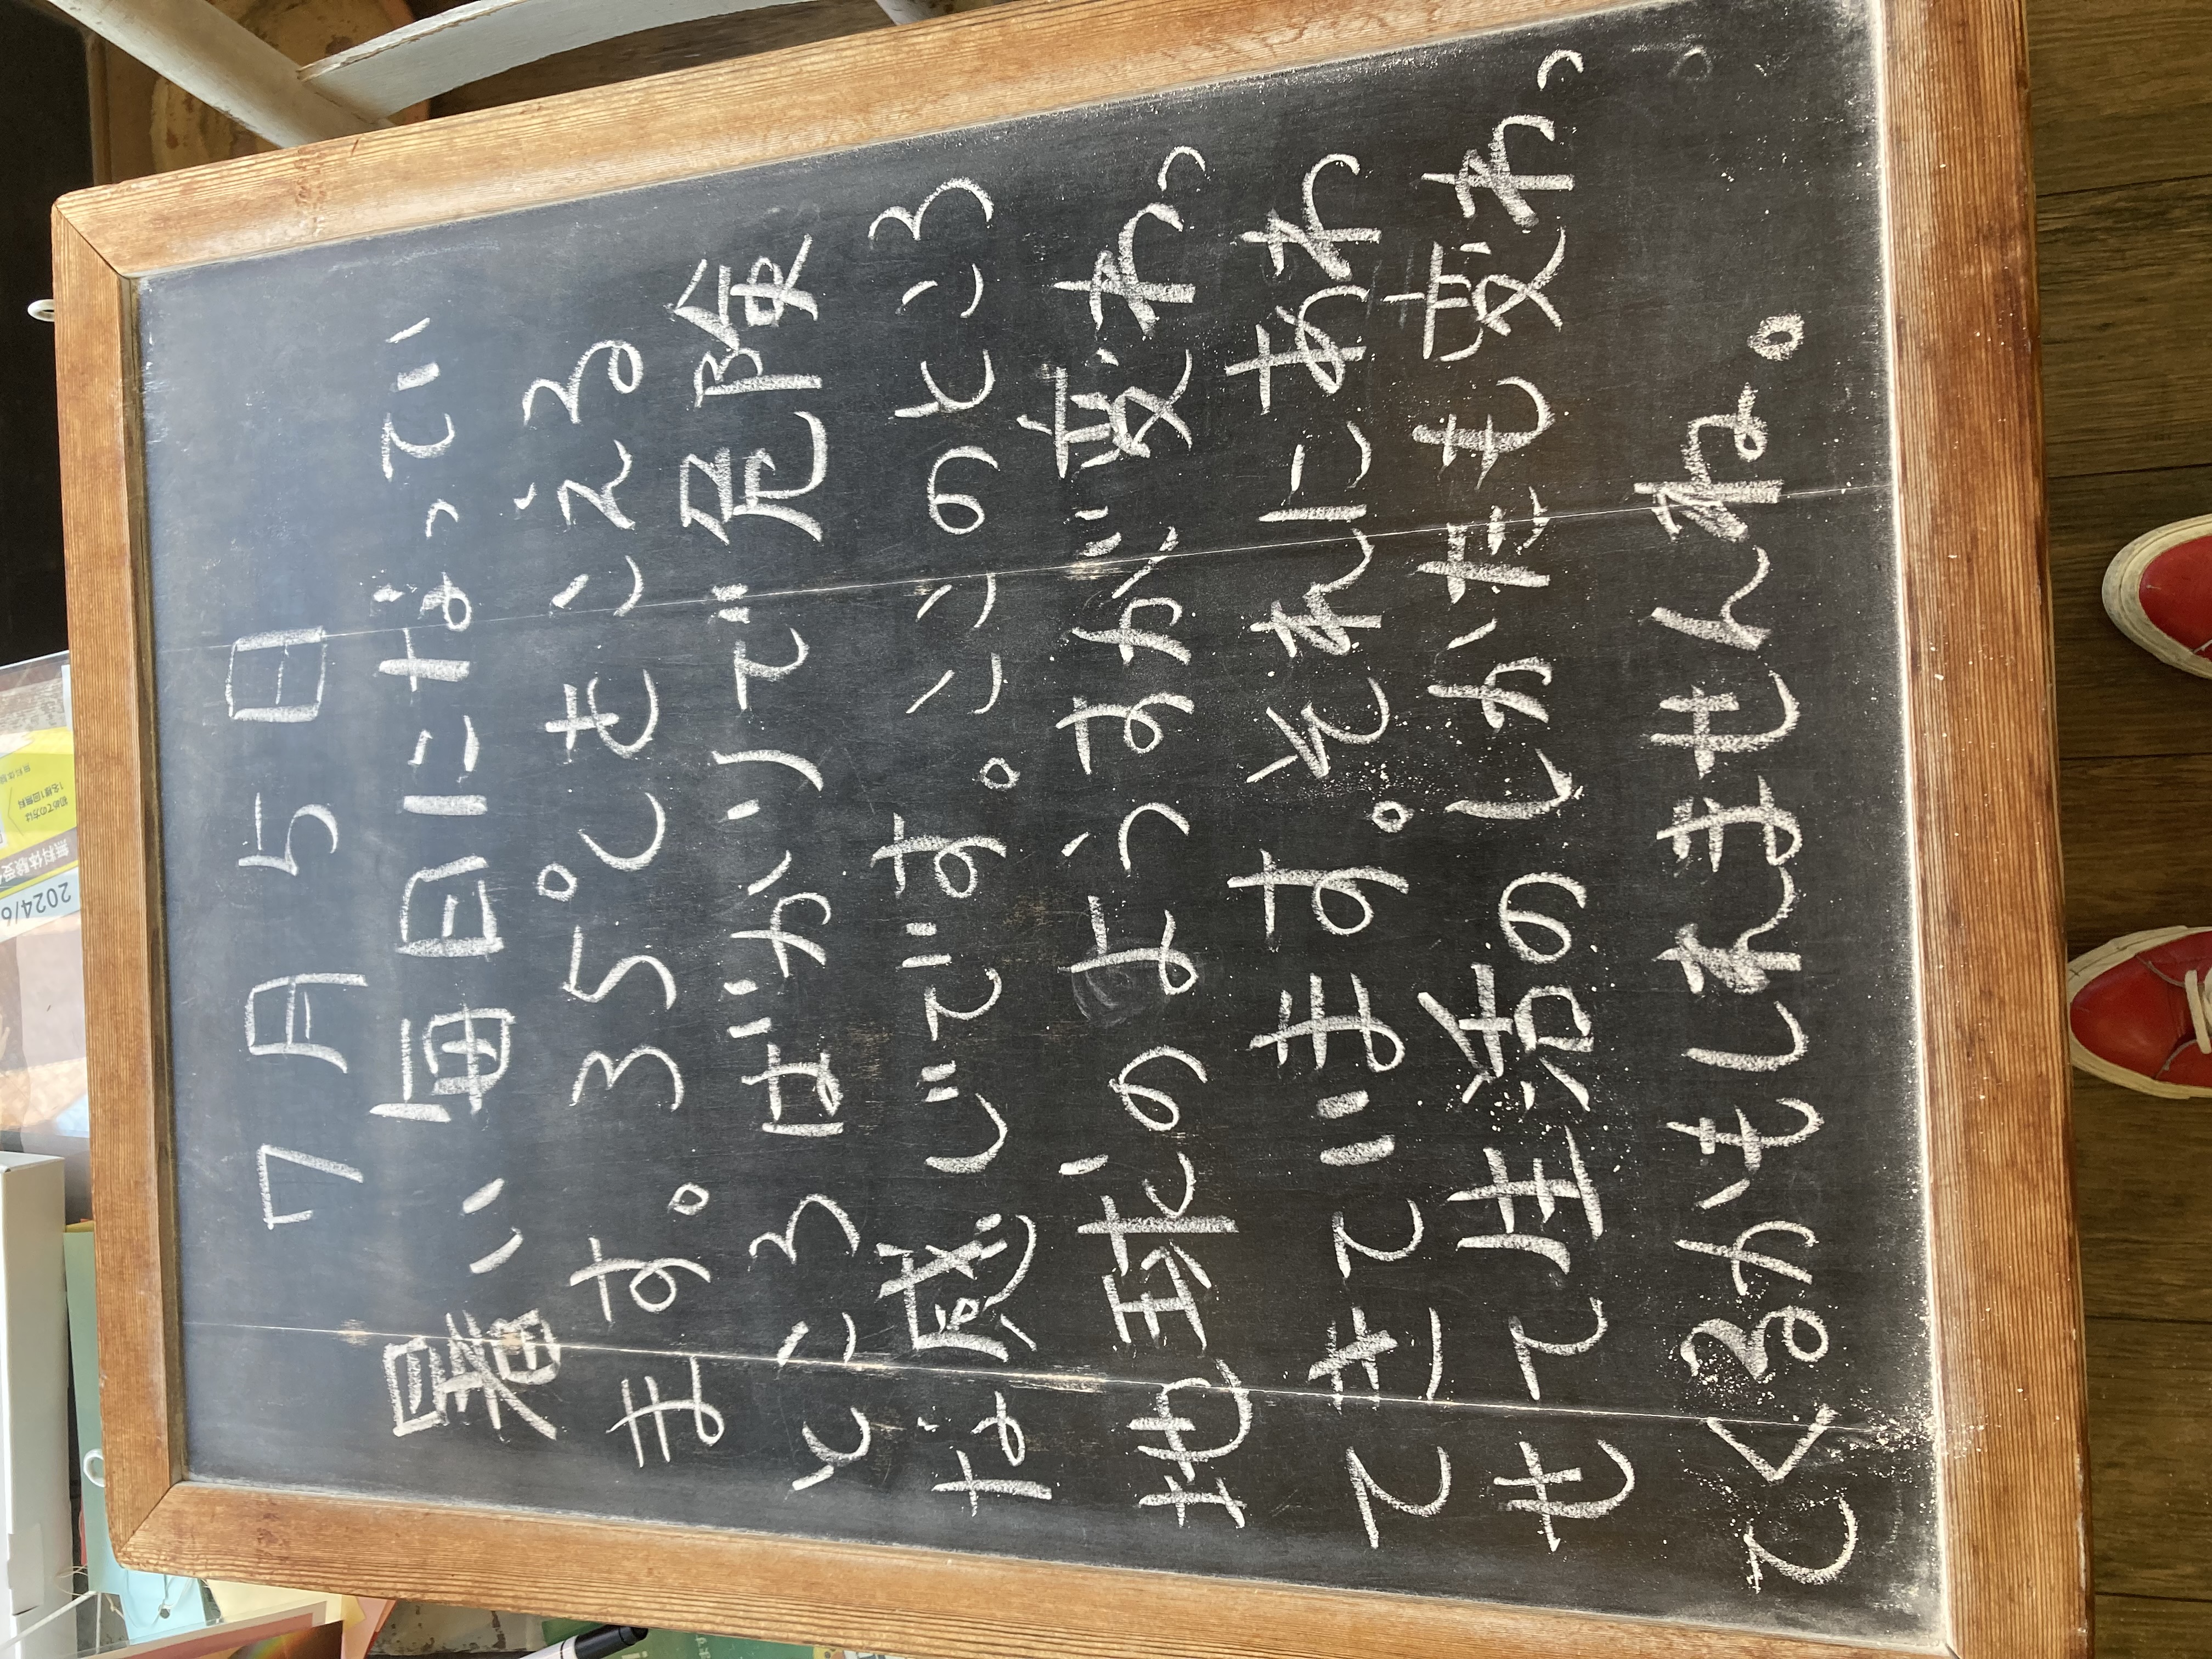 7月5日
暑い毎日になってい
ます。35℃もこえる
ところばかりで危険
な感じです。ここのところ
地球のようすが変わっ
てきています。それにあわ
せて生活のしかたも変わっ
てくるかもしれませんね。
2024/6
無料体験受
初めての方は
1名様1回無料